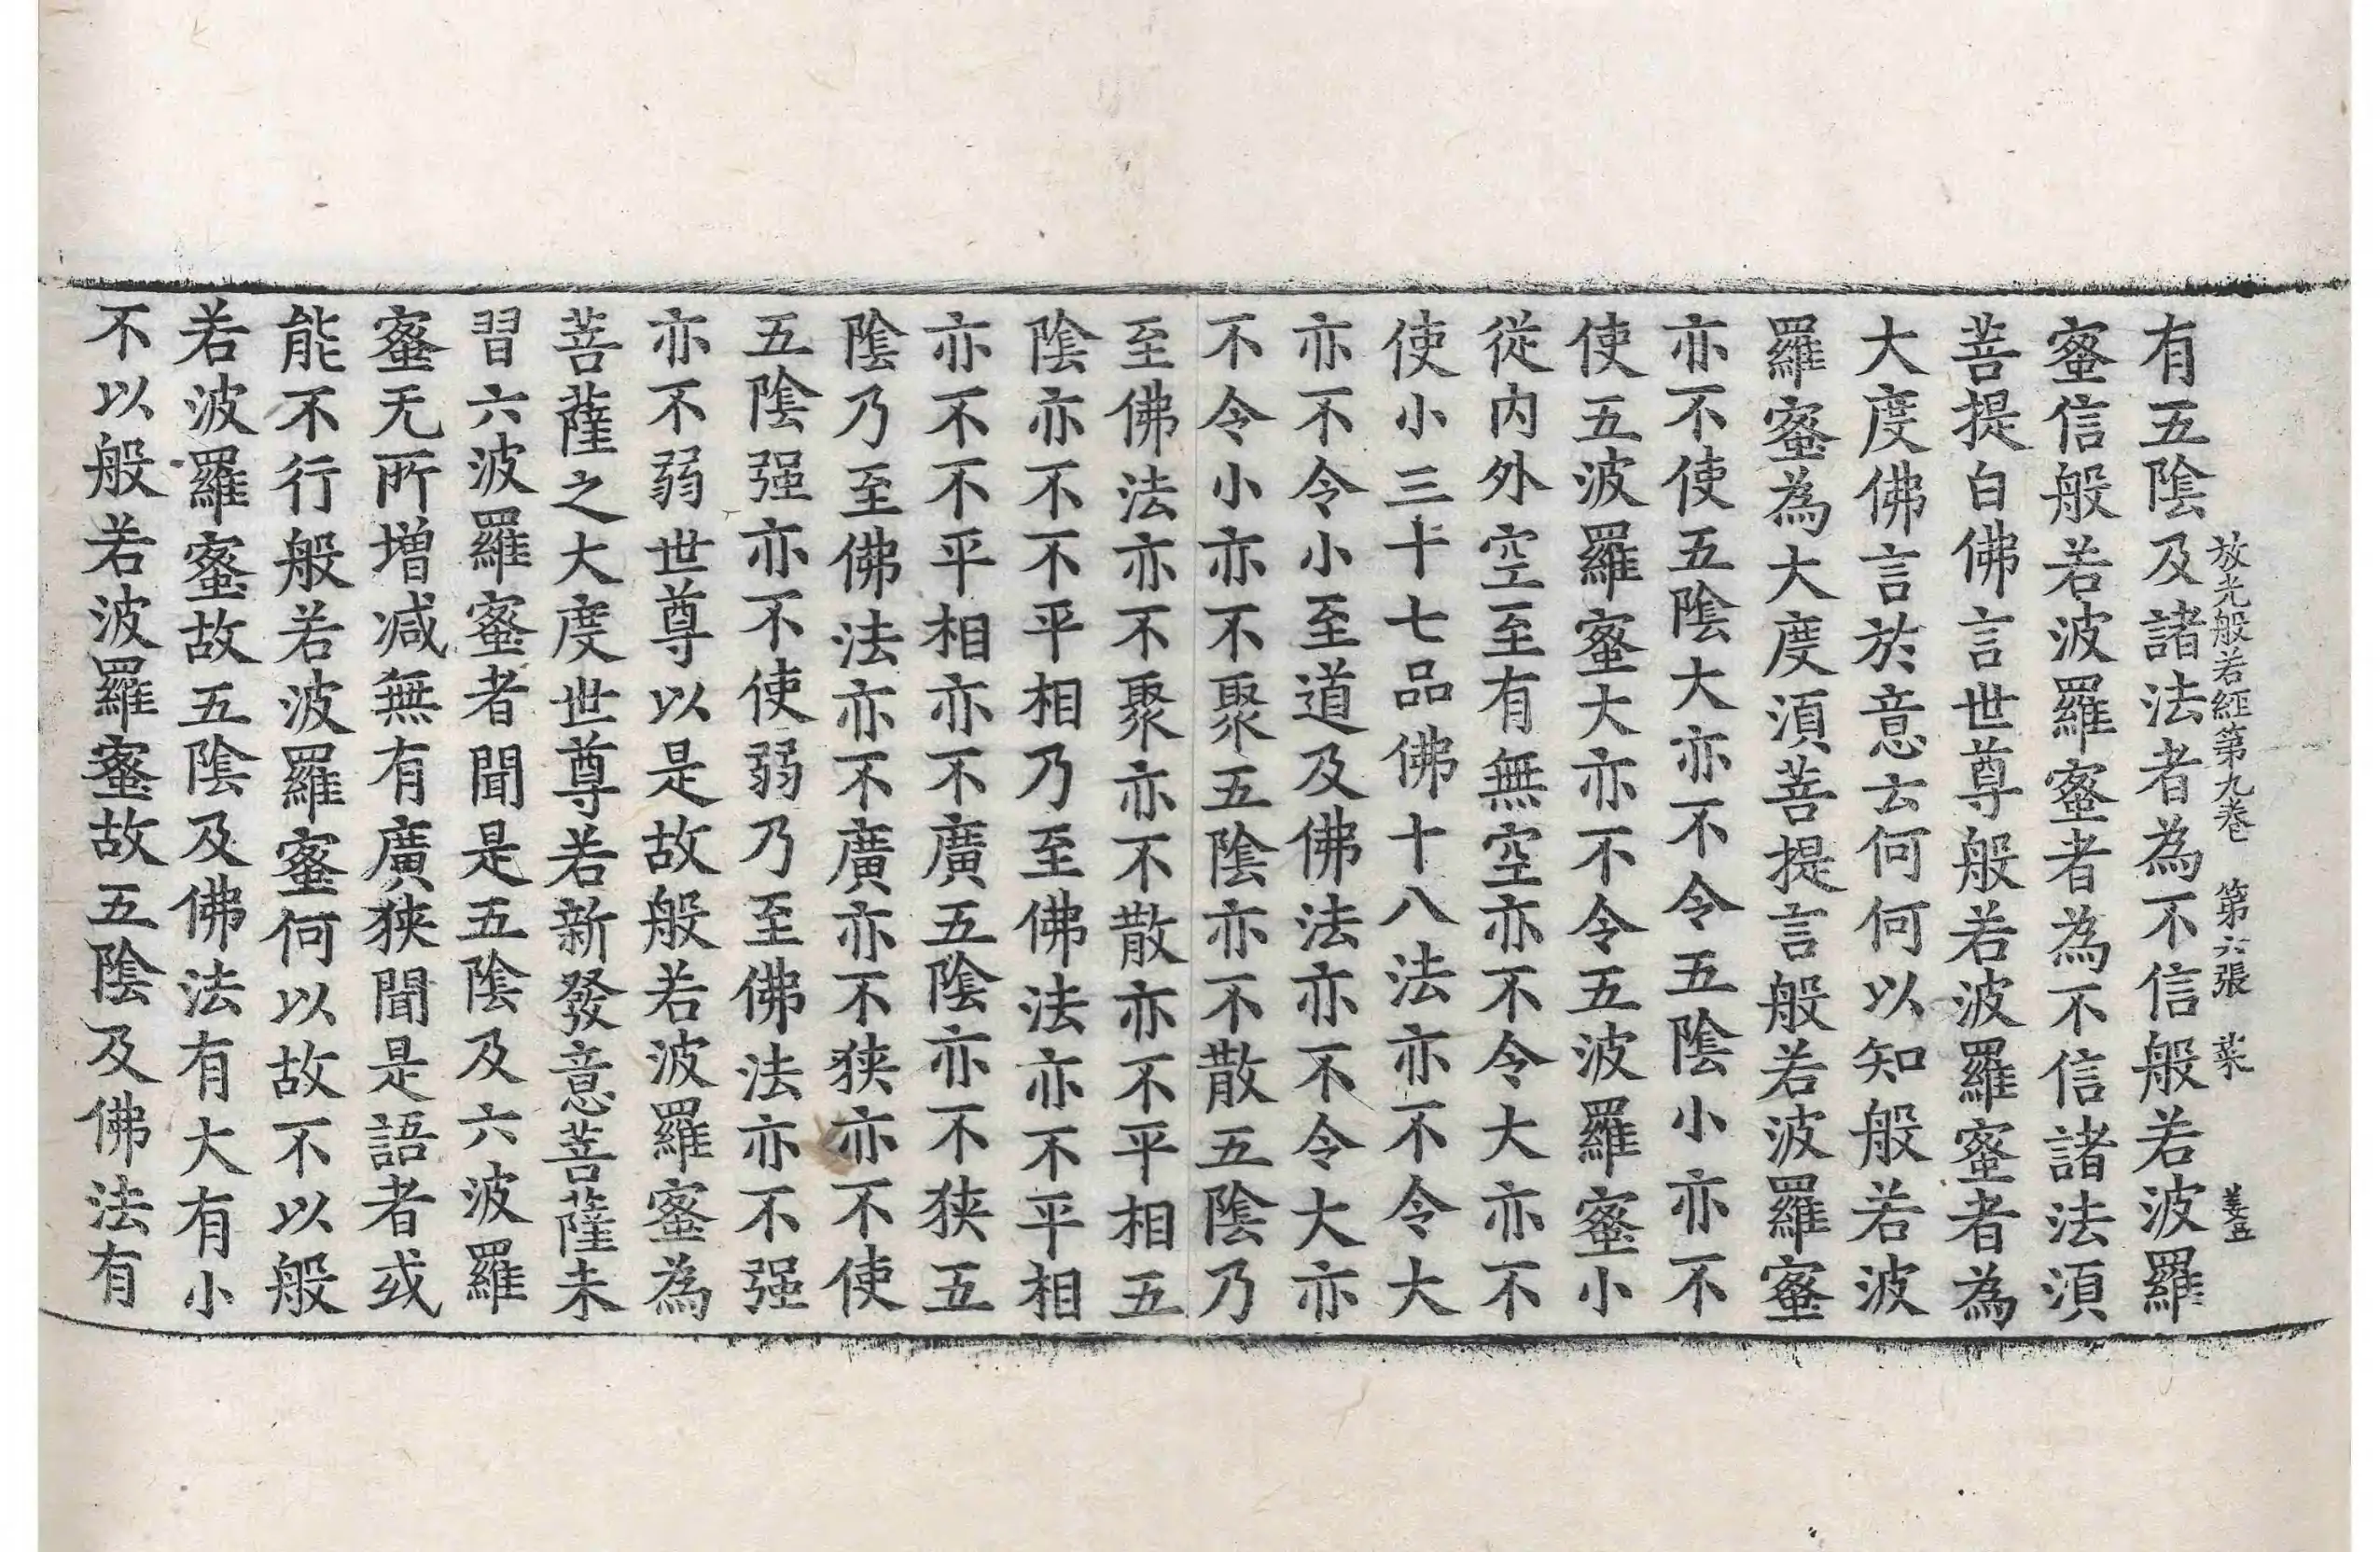 有五陰及諸法者為不信般若波羅
放光般若經第九卷　第六張　菜　姜五
蜜信般若波羅蜜者為不信諸法湏
菩提白佛言世尊般若波羅蜜者為
大度佛言於意云何何以知般若波
羅蜜為大度湏菩提言般若波羅蜜
亦不使五陰大亦不令五陰小亦不
使五波羅蜜大亦不令五波羅蜜小
從內外空至有無空亦不令大亦不
使小三十七品佛十八法亦不令大
亦不令小至道及佛法亦不令大亦
不令小亦不聚五陰亦不散五陰乃
至佛法亦不聚亦不散亦不平相五
陰亦不不平相乃至佛法亦不平相
亦不不平相亦不廣五陰亦不狹五
陰乃至佛法亦不廣亦不狹亦不使
五陰强亦不使弱乃至佛法亦不强
亦不弱世尊以是故般若波羅蜜為
菩薩之大度世尊若新發意菩薩未
習六波羅蜜者聞是五陰及六波羅
蜜无所增减無有廣狹聞是語者或
能不行般若波羅蜜何以故不以般
若波羅蜜故五陰及佛法有大有小
不以般若波羅蜜故五陰及佛法有